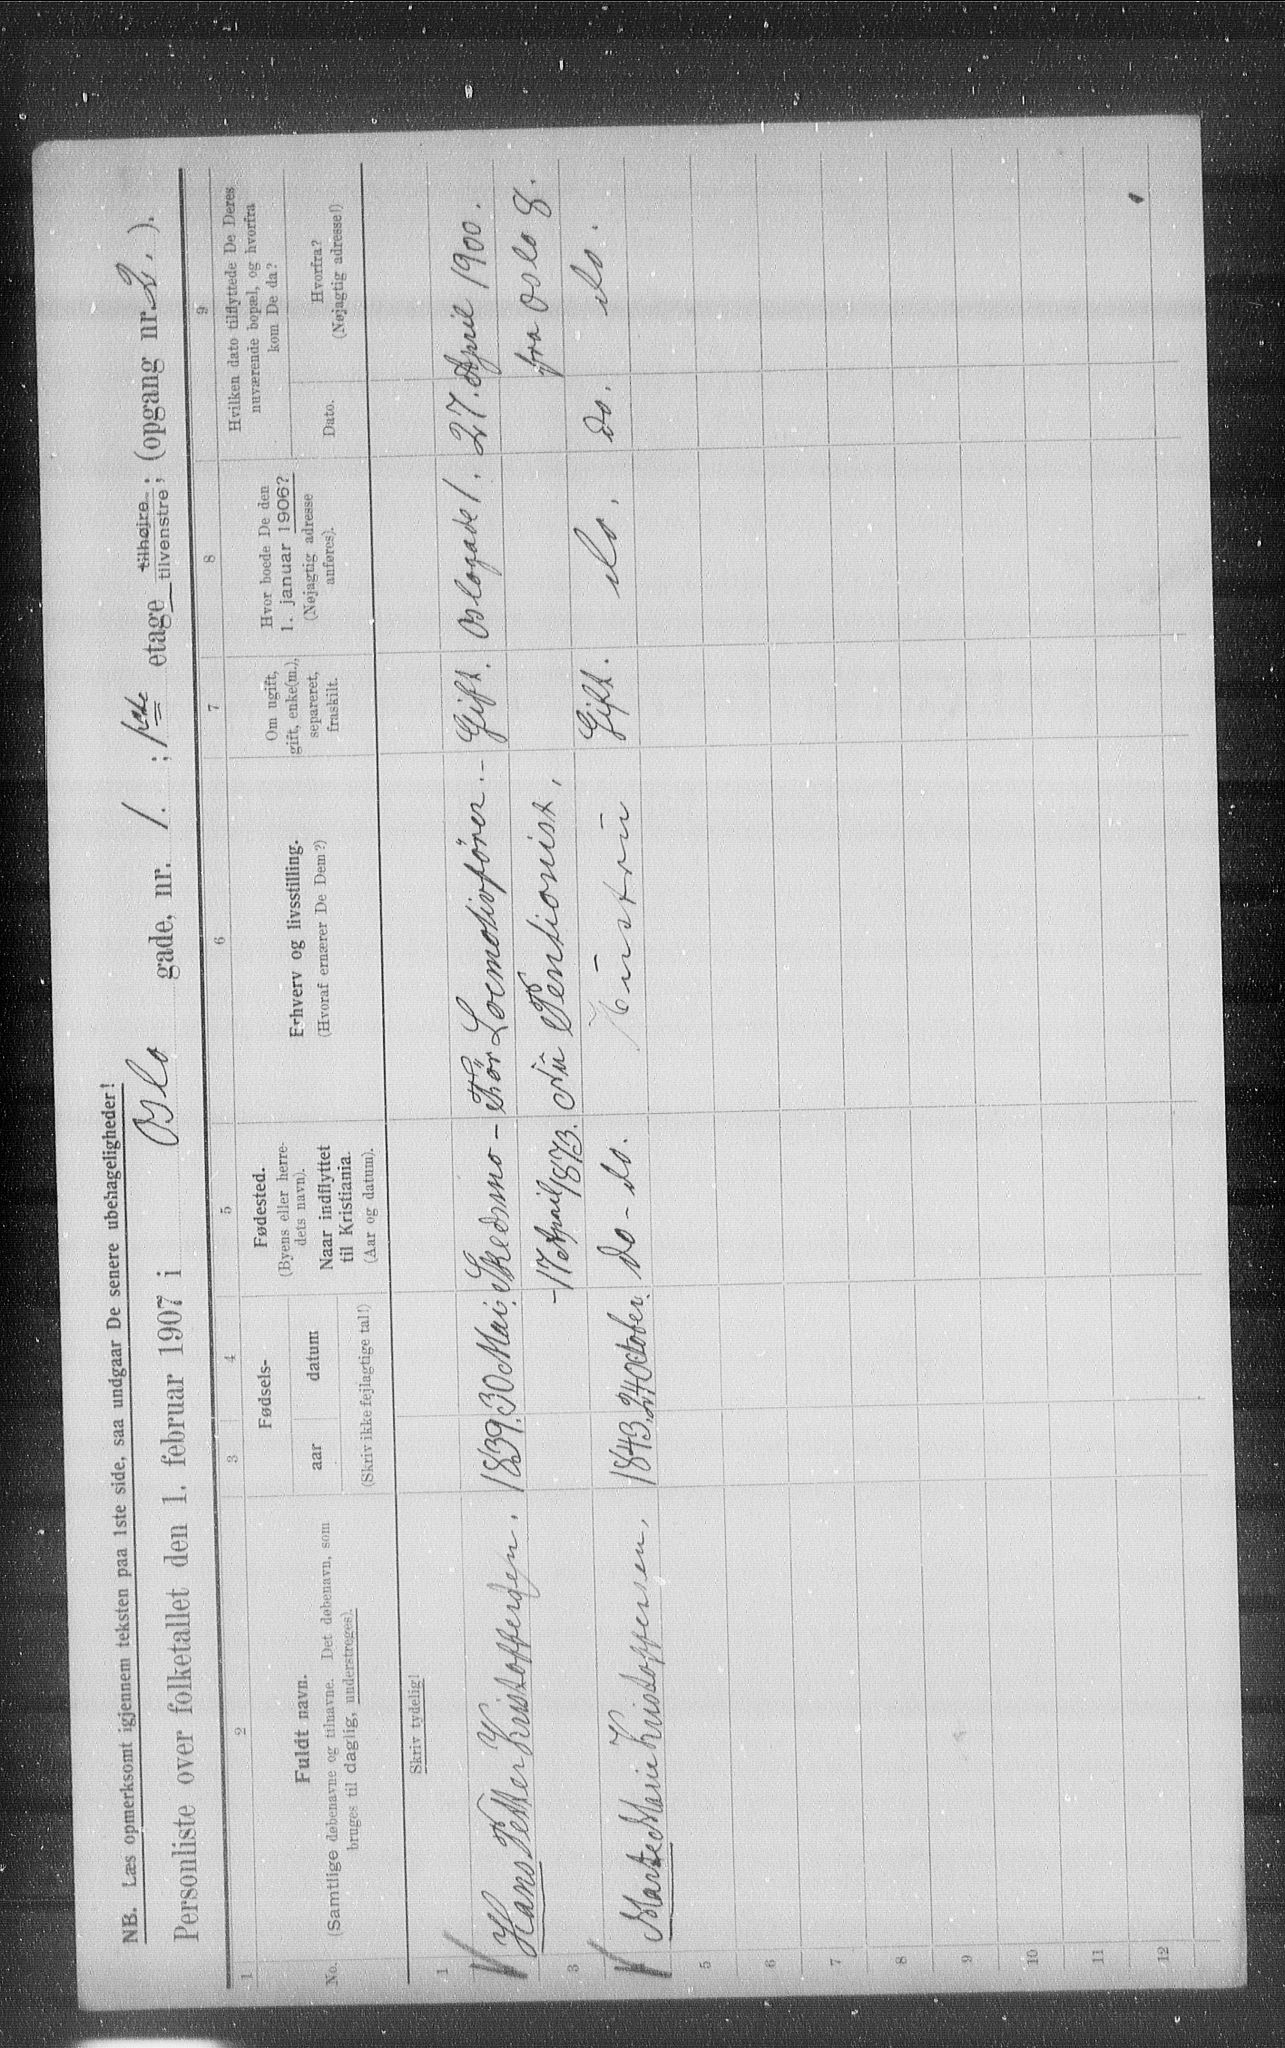 NB. Læs opmerksomt igjennem teksten paa 1ste side, saa undgaar De senere ubehageligheder!
Personliste over folketallet den 1. februar 1907 i Oslo gade, nr. 1. ; 1ste etage tilhøire ; tilvenstre ; (opgang nr. 2. ).
1 2 3 4 5 6 7 8 9
No.
Fuldt navn.
(Samtlige døbenavne og tilnavne. Det døbenavn, som
bruges til daglig, understreges).
Fødsels-
aar datum
(Skriv ikke feilagtige tal!)
Fødested.
(Byens eller herre-
dets navn).
Naar indflyttet
til Kristiania
(Aar og datum).
Erhverv og livsstilling.
(Hvoraf ernærer De Dem?)
Om ugift,
gift, enke(m.),
separeret,
fraskilt.
Hvor boede De den
1. januar 1906?
(Nøjagtig adresse
anføres).
Hvilken dato tilflyttede De Deres
nuværende bopæl, og hvorfra
kom De da?
Dato.
Hvorfra?
(Nøjagtig adresse!)
Skriv tydelig!
1
Hans Petter Kristoffersen. 1839. 30 Mai. Skedsmo - Før Locmotivfører. - Gift. Oslogade 1. 27. April 1900.
- 17 April 1873. Nu Pentionist, fra Oslo 8.
3
Marte Marie Kristoffersen, 1843. 24 October. do - do. Hustru Gift. do. do. do.
5
6
7
8
9
10
11
12